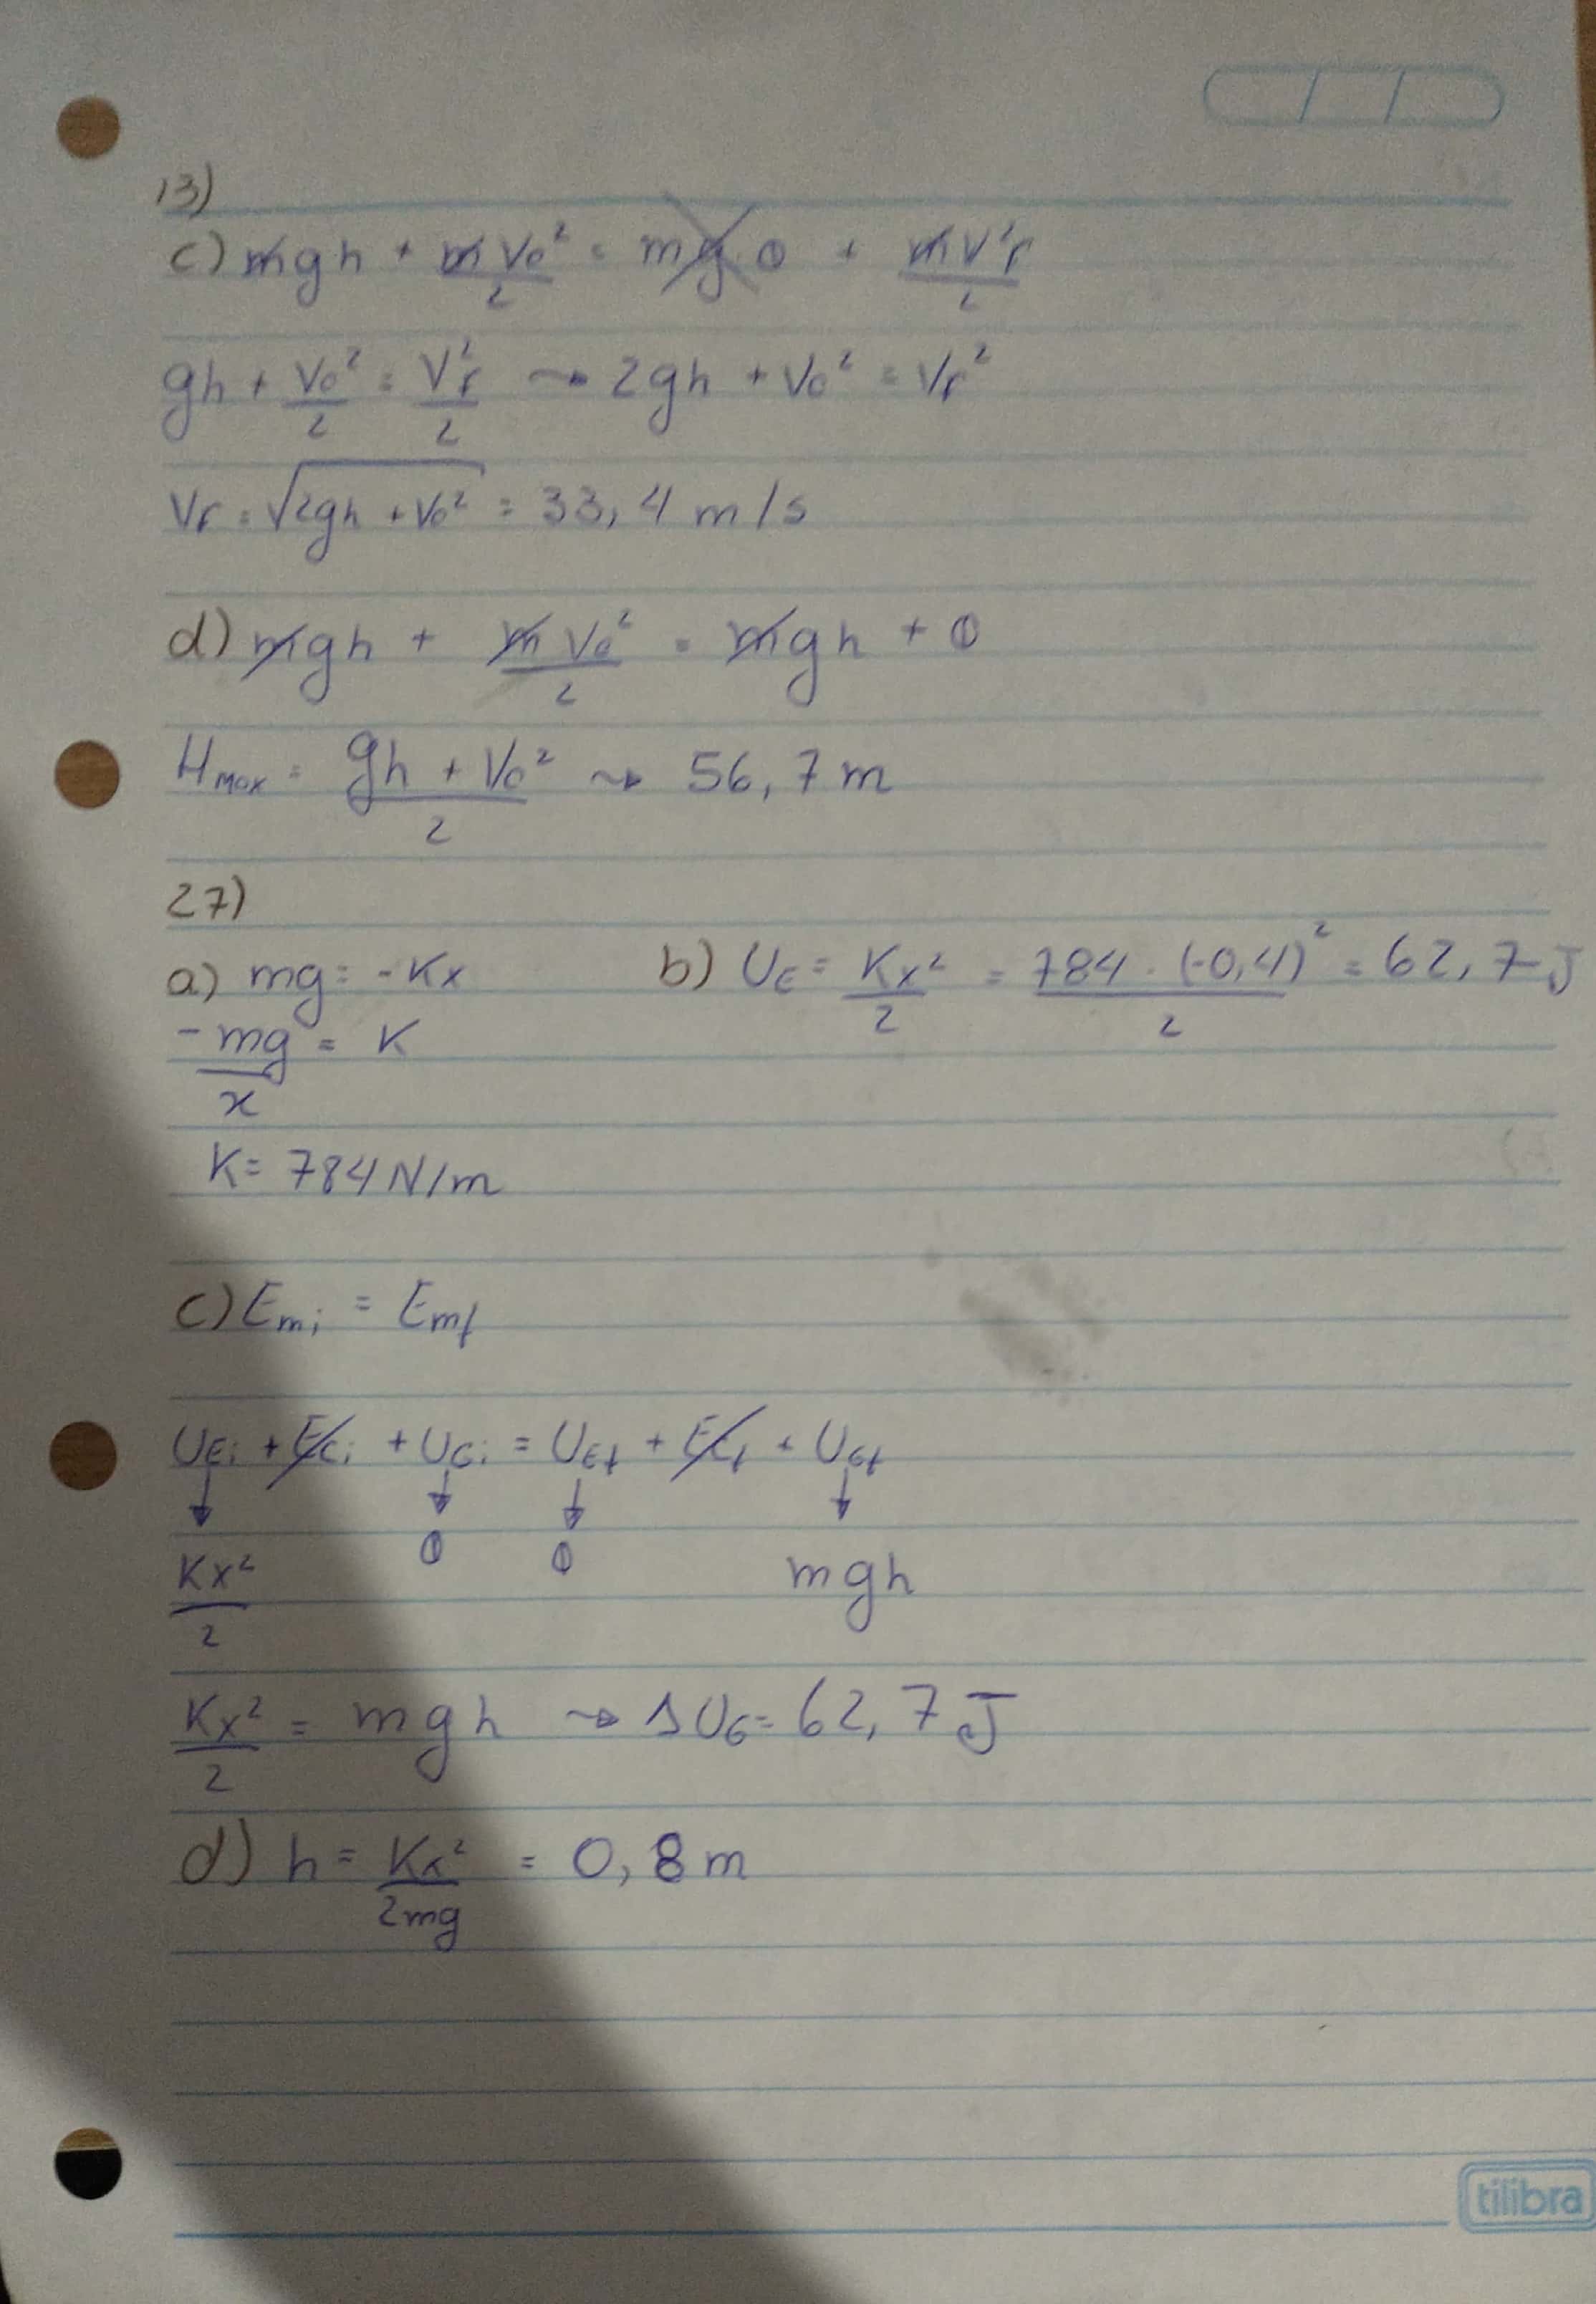 13)
c) mgh + mVo²/2 = mg0 + mVf²/2
gh + Vo²/2 = Vf²/2 → 2gh + Vo² = Vf²
Vf = √2gh + Vo² = 33,4 m/s
d) mgh + mVo²/2 = mgh + 0
Hmax = gh + Vo²/2 → 56,7 m
27)
a) mg = -Kx
-mg/x = K
K = 784 N/m
b) UE = Kx²/2 = 784 . (-0,4)²/2 = 62,7 J
c) Emi = Emf
UEi + Eci + UGi = UEf + Ecf + UGf
↓ ↓ ↓ ↓
Kx²/2 0 0 mgh
Kx²/2 = mgh → ΔUG = 62,7 J
d) h = Kx²/2mg = 0,8 m
tilibra